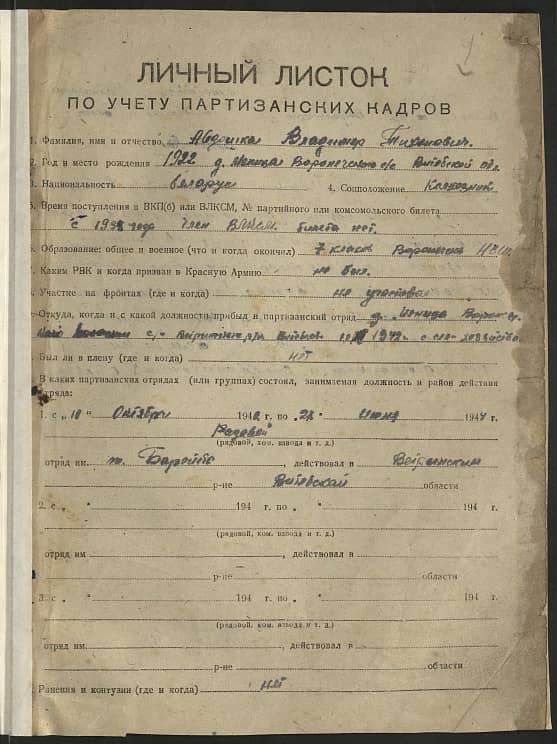 ЛИЧНЫЙ ЛИСТОК
ПО УЧЕТУ ПАРТИЗАНСКИХ КАДРОВ
1. Фамилия, имя и отчество Владимир Тихонович.
2. Год и место рождения 1922 д. с/с Витебской обл.
3. Национальность беларус 4. Соцположение Колхозник
5. Время поступления в ВКП(б) или ВЛКСМ, № партийного или комсомольского билета
с 1938 года член ВЛКСМ. билета нет.
6. Образование: общее и военное (что и когда окончил) 7 класов
7. Каким РВК и когда призван в Красную Армию не был.
8. Участие на фронтах (где и когда) не участвовал
Откуда, когда и с какой должности прибыл и партизанский отряд д.
1942 г с хозяйства
Был ли в плену (где и когда) нет
В каких партизанских отрядах (или группах) состоял, занимаемая должность и район действия
отряда:
1. с „10" Октября 1942 г. по „ Июня 1944 г.
Радавой
(рядовой, ком. взвода и т. д.)
отряд им. т. , действовал в Ветринским
р-не Витебской области
2. с „ " 194 г. по „ " 194 г.
(рядовой, ком. взвода и т. д.)
отряд им , действовал в
р-не области
3. с „ " 194 г. по „ " 194 г.
(рядовой, ком. взвода и т. д.)
отряд им. , действовал в
р-не области
Ранения и контузии (где и когда) нет